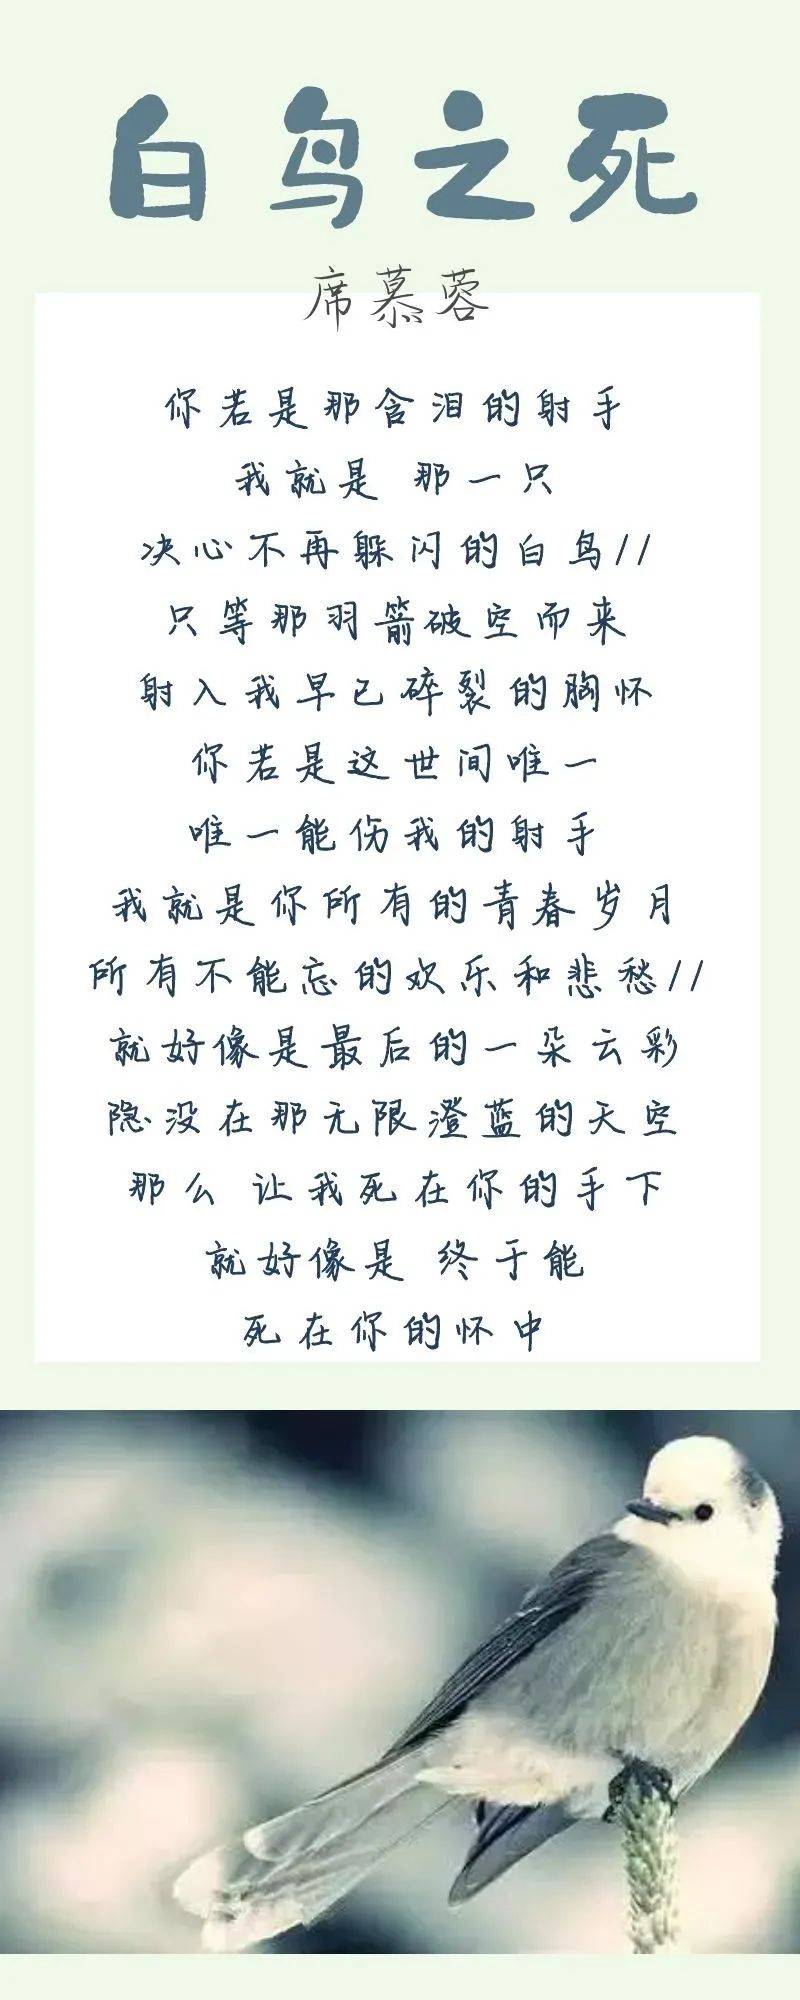 白鸟之死
席慕蓉
你若是那含泪的射手
我就是 那一只
决心不再躲闪的白鸟//
只等那羽箭破空而来
射入我早已碎裂的胸怀
你若是这世间唯一
唯一能伤我的射手
我就是你所有的青春岁月
所有不能忘的欢乐和悲愁//
就好像是最后的一朵云彩
隐没在那无限澄蓝的天空
那么 让我死在你的手下
就好像是 终于能
死在你的怀中